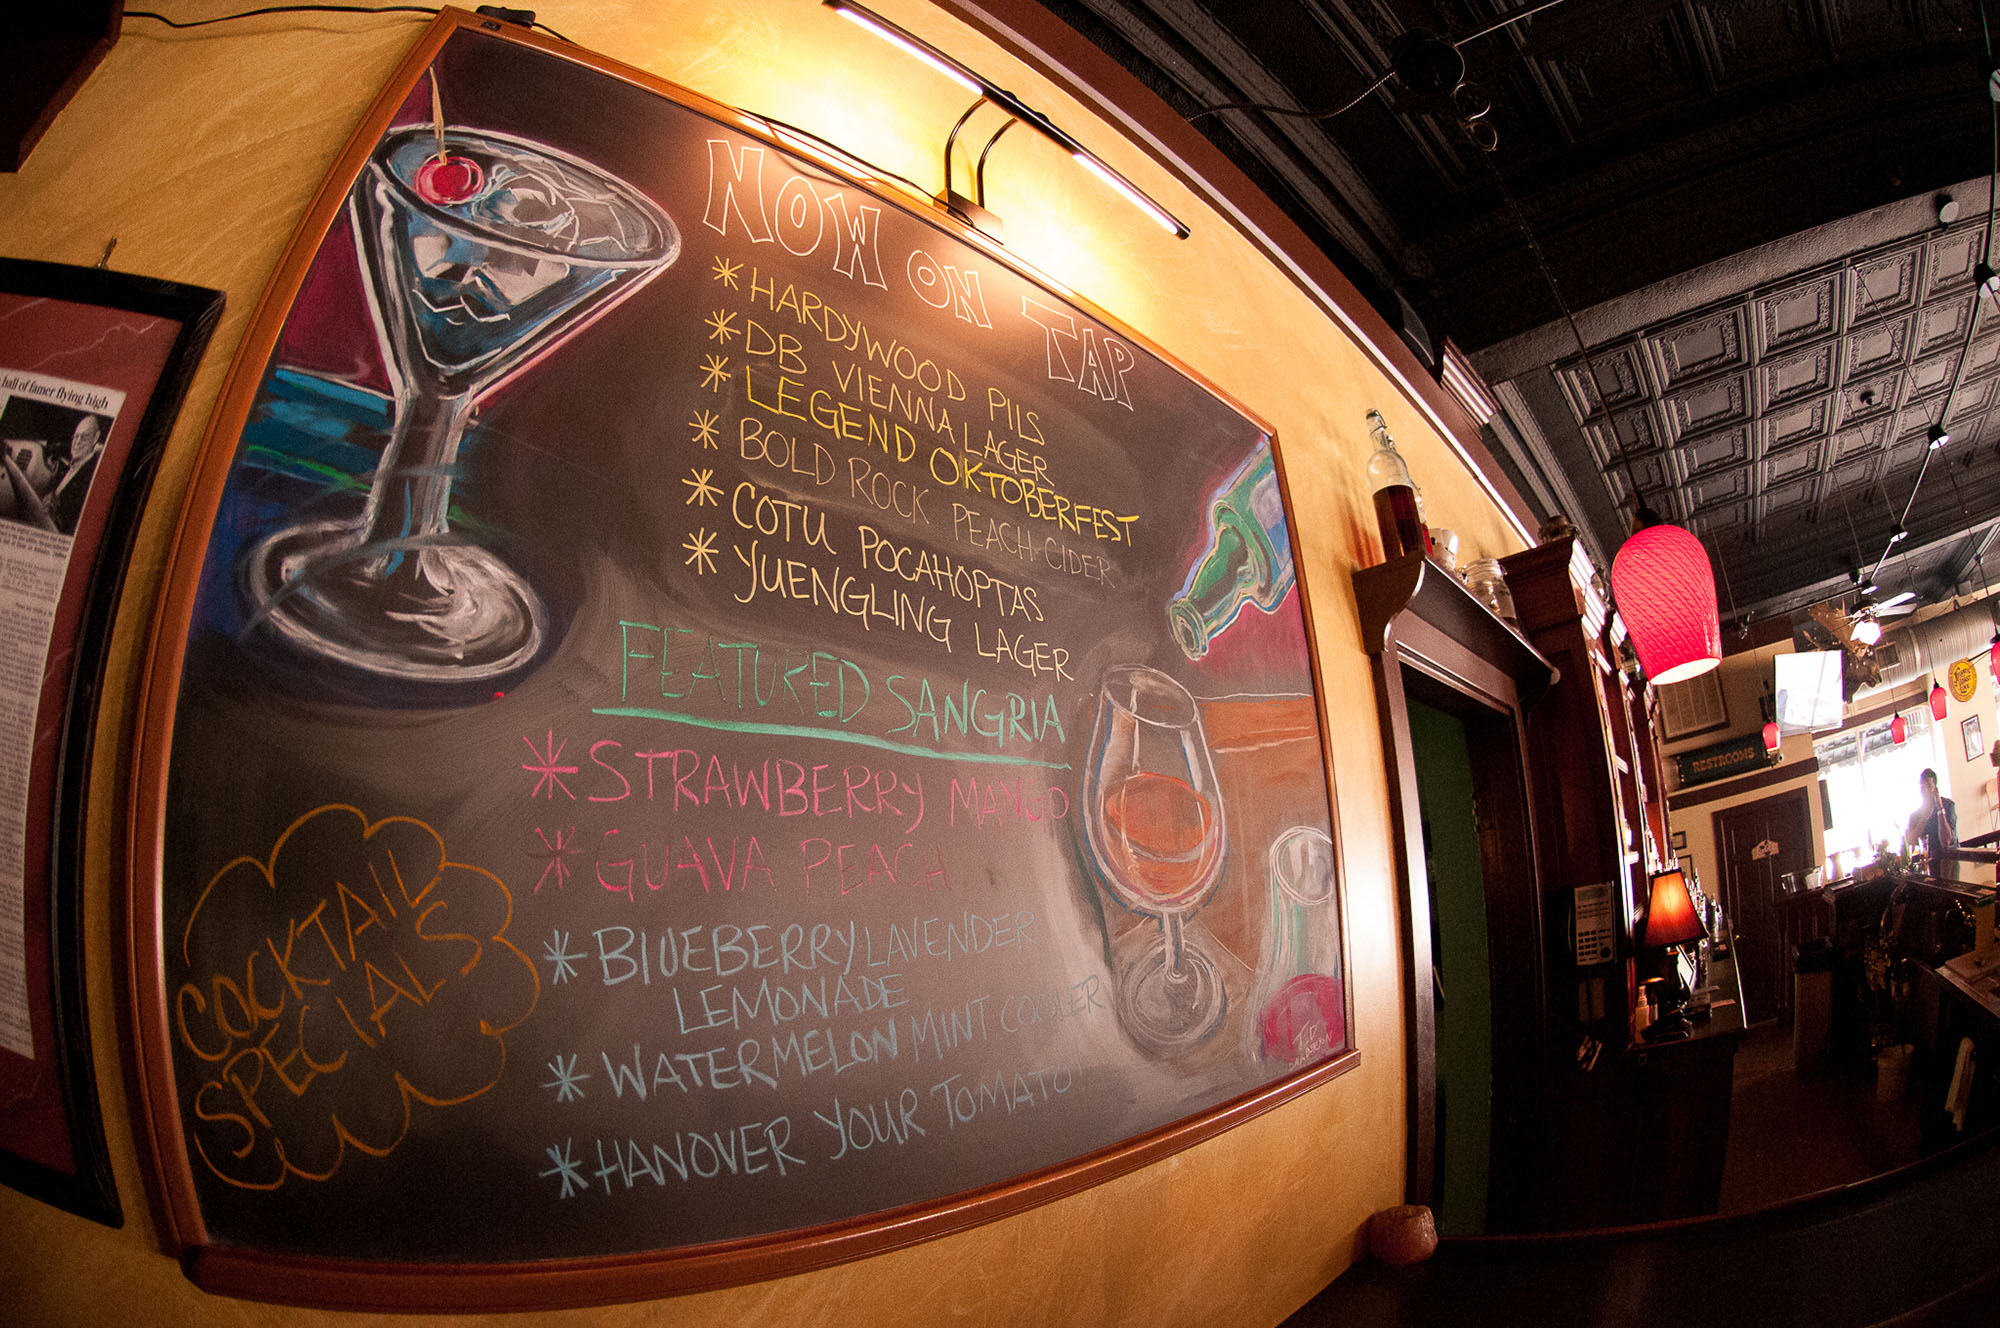 hall of famer flying high
NOW ON TAP
* HARDYWOOD PILS
* DB VIENNA LAGER
* LEGEND OKTOBERFEST
* BOLD ROCK PEACH CIDER
* COTU POCAHOPTAS
* YUENGLING LAGER
FEATURED SANGRIA
* STRAWBERRY MANGO
* GUAVA PEACH
COCKTAIL
SPECIALS
* BLUEBERRY LAVENDER
LEMONADE
* WATERMELON MINT COOLER
* HANOVER YOUR TOMATO!
RESTROOMS